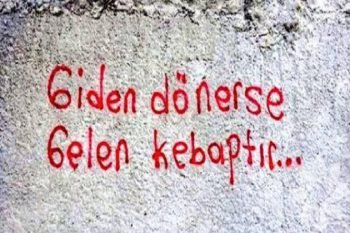 Giden dönerse
Gelen kebaptır...